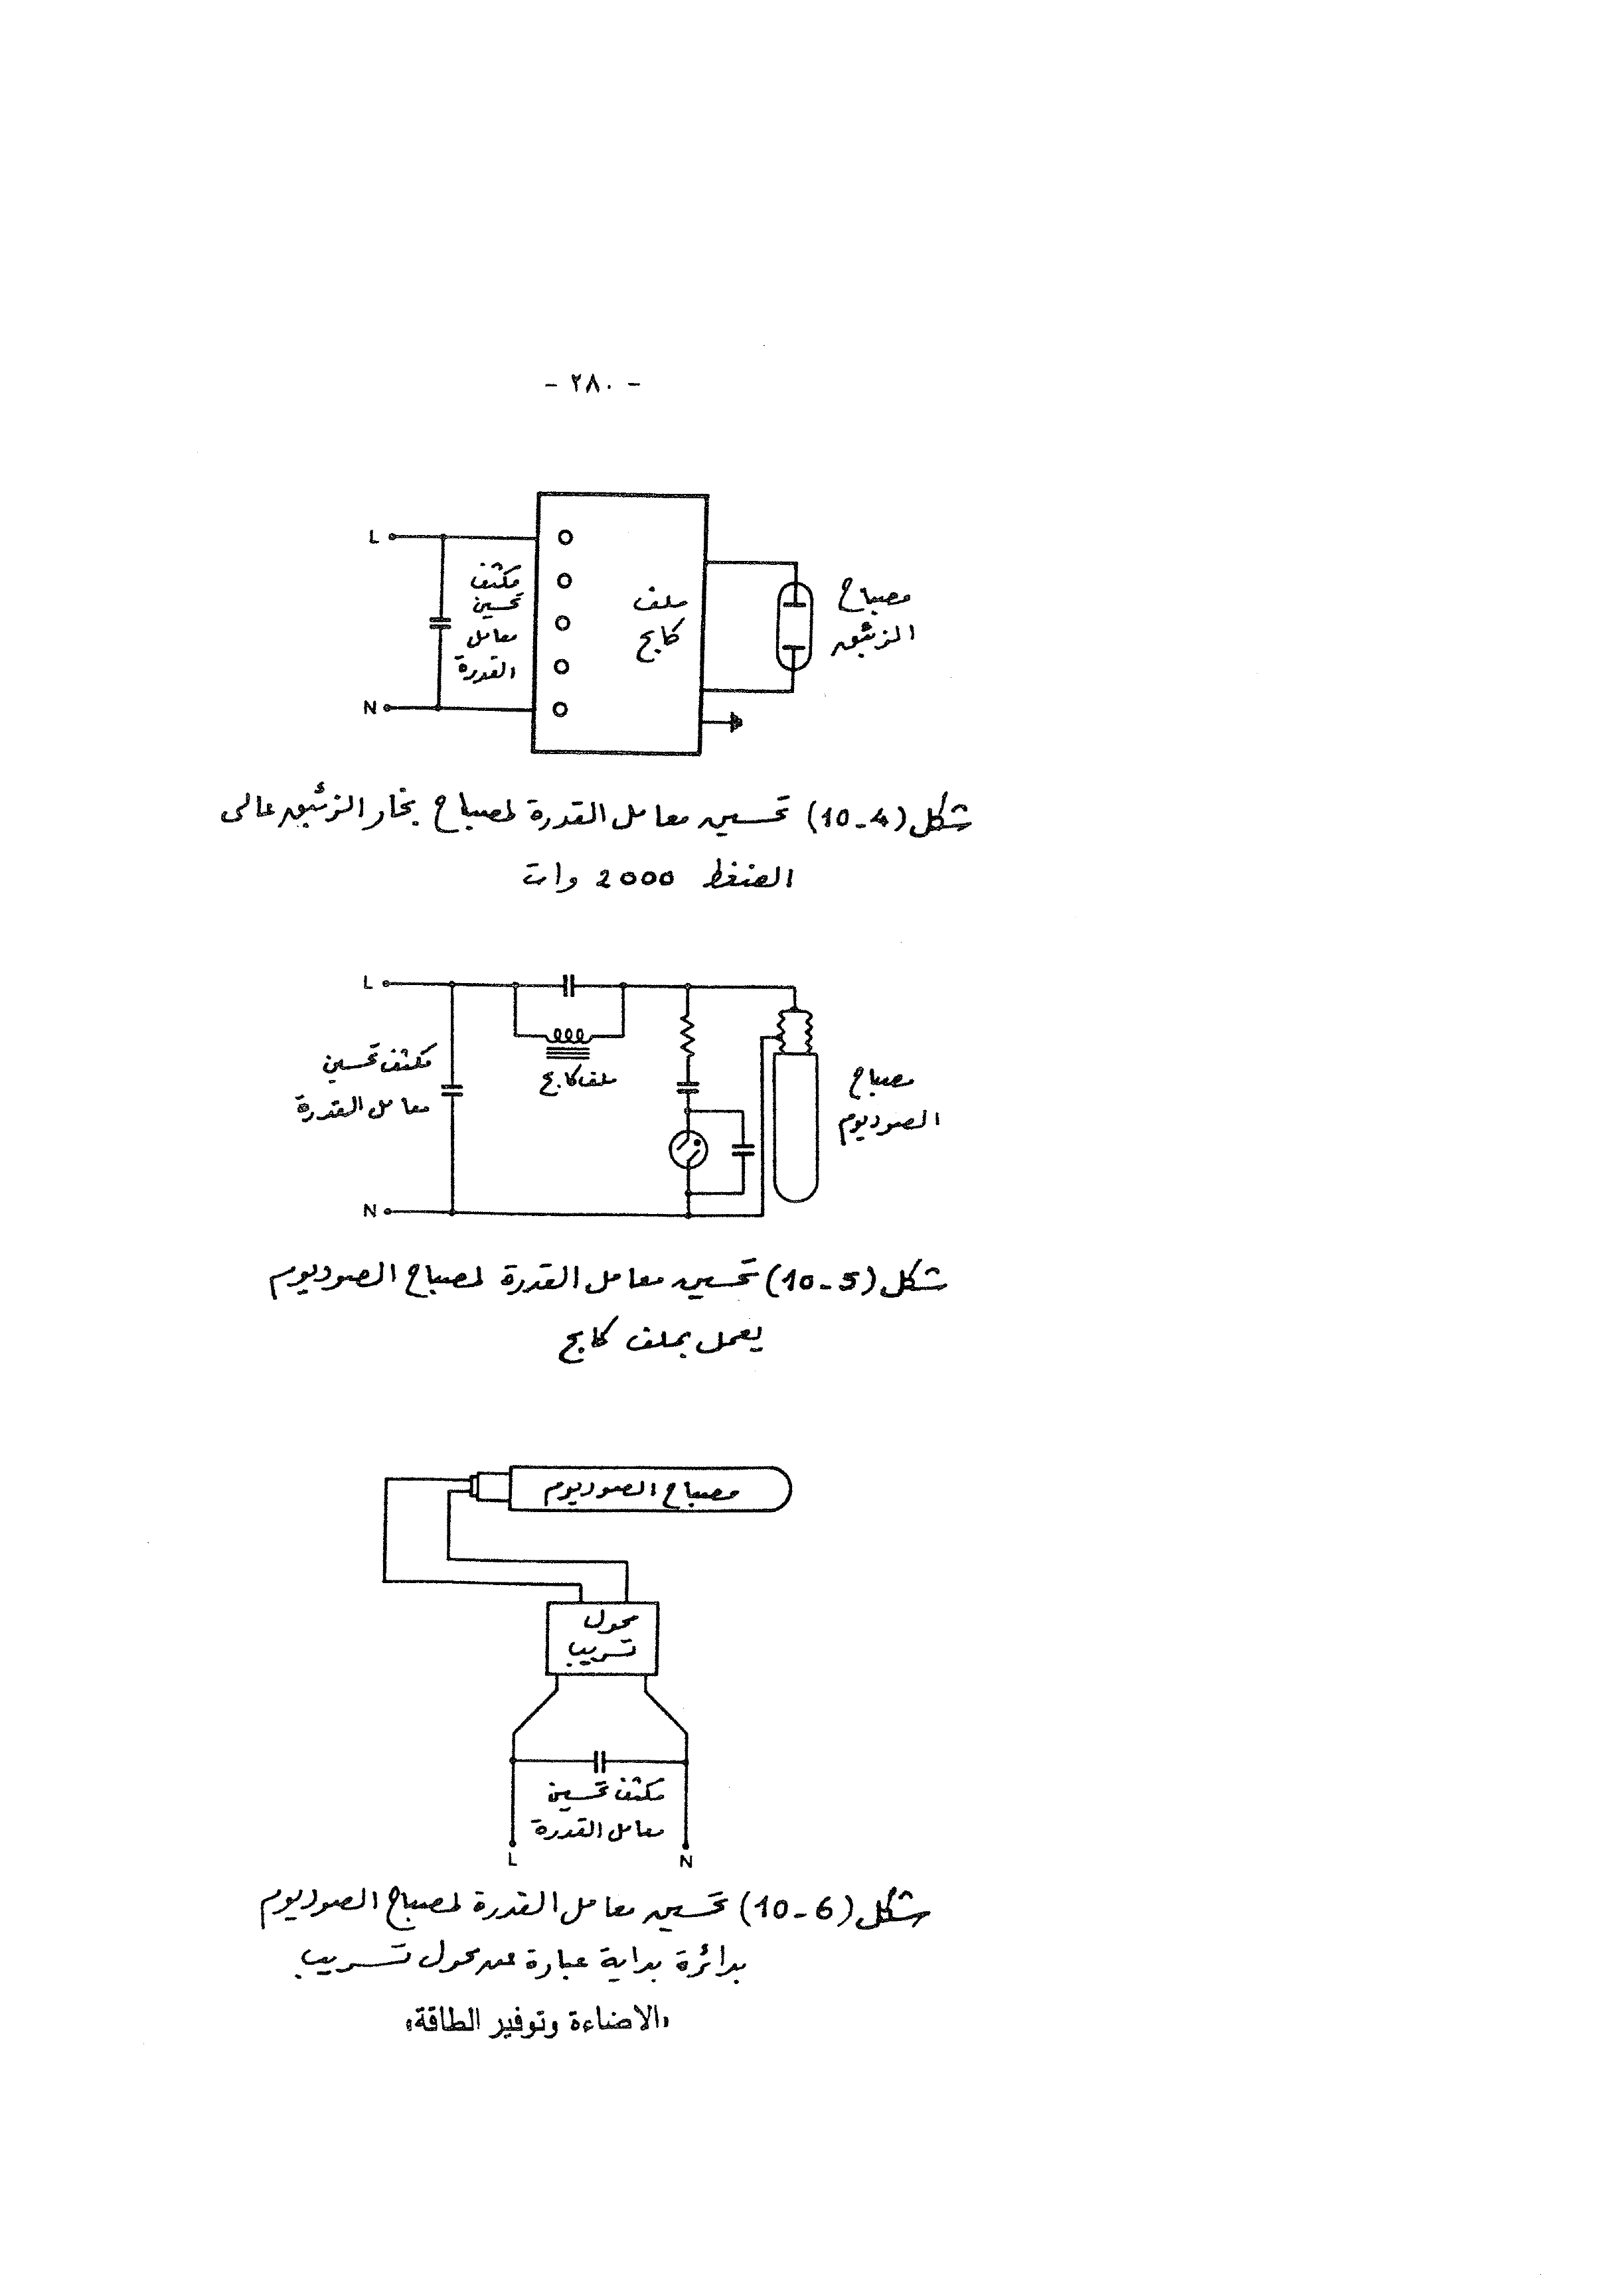 - ٢٨٠ -
L
مكثف
تحسين
معامل
القدرة
N
ملف
كابح
مصباح
الزئبق
شكل (4-10) تحسين معامل القدرة لمصباح بخار الزئبق عالى
الضغط 2000 وات
L
مكثف تحسين
معامل القدرة
N
ملف كابح
مصباح
الصوديوم
شكل (5-10) تحسين معامل القدرة لمصباح الصوديوم
يعمل بملف كابح
مصباح الصوديوم
محول
تسريب
مكثف تحسين
معامل القدرة
L
N
شكل (6-10) تحسين معامل القدرة لمصباح الصوديوم
بدائرة بداية عبارة عن محول تسريب
«الاضاءة وتوفير الطاقة»